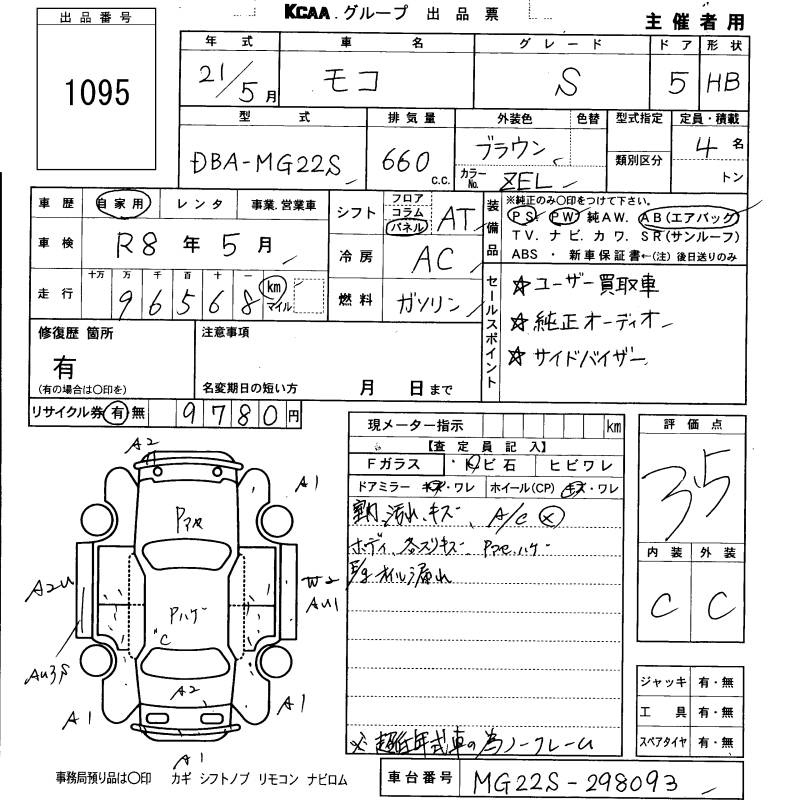 KCAA グループ 出品票
主催者用
出品番号
1095
年式 車名 グレード ドア 形状
21/5月 モコ S 5 HB
型式 排気量 外装色 色替 型式指定 定員・積載
DBA-MG22S 660 c.c. ブラウン 4名
カラーNo. ZEL 類別区分 トン
車歴 自家用 レンタ 事業.営業車
車検 R8年5月
十万 万 千 百 十 一
走行 96568 km マイル
シフト フロア コラム パネル AT
冷房 AC
燃料 ガソリン
装備品
※純正のみ〇印をつけて下さい。
PS. PW. 純AW. AB(エアバッグ)
TV. ナビ. カワ. SR(サンルーフ)
ABS ・ 新車保証書←(注)後日送りのみ
セールスポイント
☆ユーザー買取車
☆純正オーディオ
☆サイドバイザー
修復歴 箇所
有
(有の場合は〇印を)
注意事項
名変期日の短い方 月 日まで
リサイクル券 有 無 9780円
現メーター指示 km
【査定員記入】
Fガラス ・トビ石 ヒビワレ
ドアミラー キズ・ワレ ホイール(CP) キズ・ワレ
汚れ、キズ A/C ×
ボディ、各スリキズ Pアセ、ハゲ
オイル漏れ
※ 超低年式車の為ノークレーム
評価点
3.5
内装 外装
C C
ジャッキ 有・無
工具 有・無
スペアタイヤ 有・無
A2
A1
Pアセ
A2U
W2
AU1
Pハゲ
C
AU3S
A2
A1
A1
A1
事務局預り品は〇印 カギ シフトノブ リモコン ナビロム
車台番号 MG22S-298093